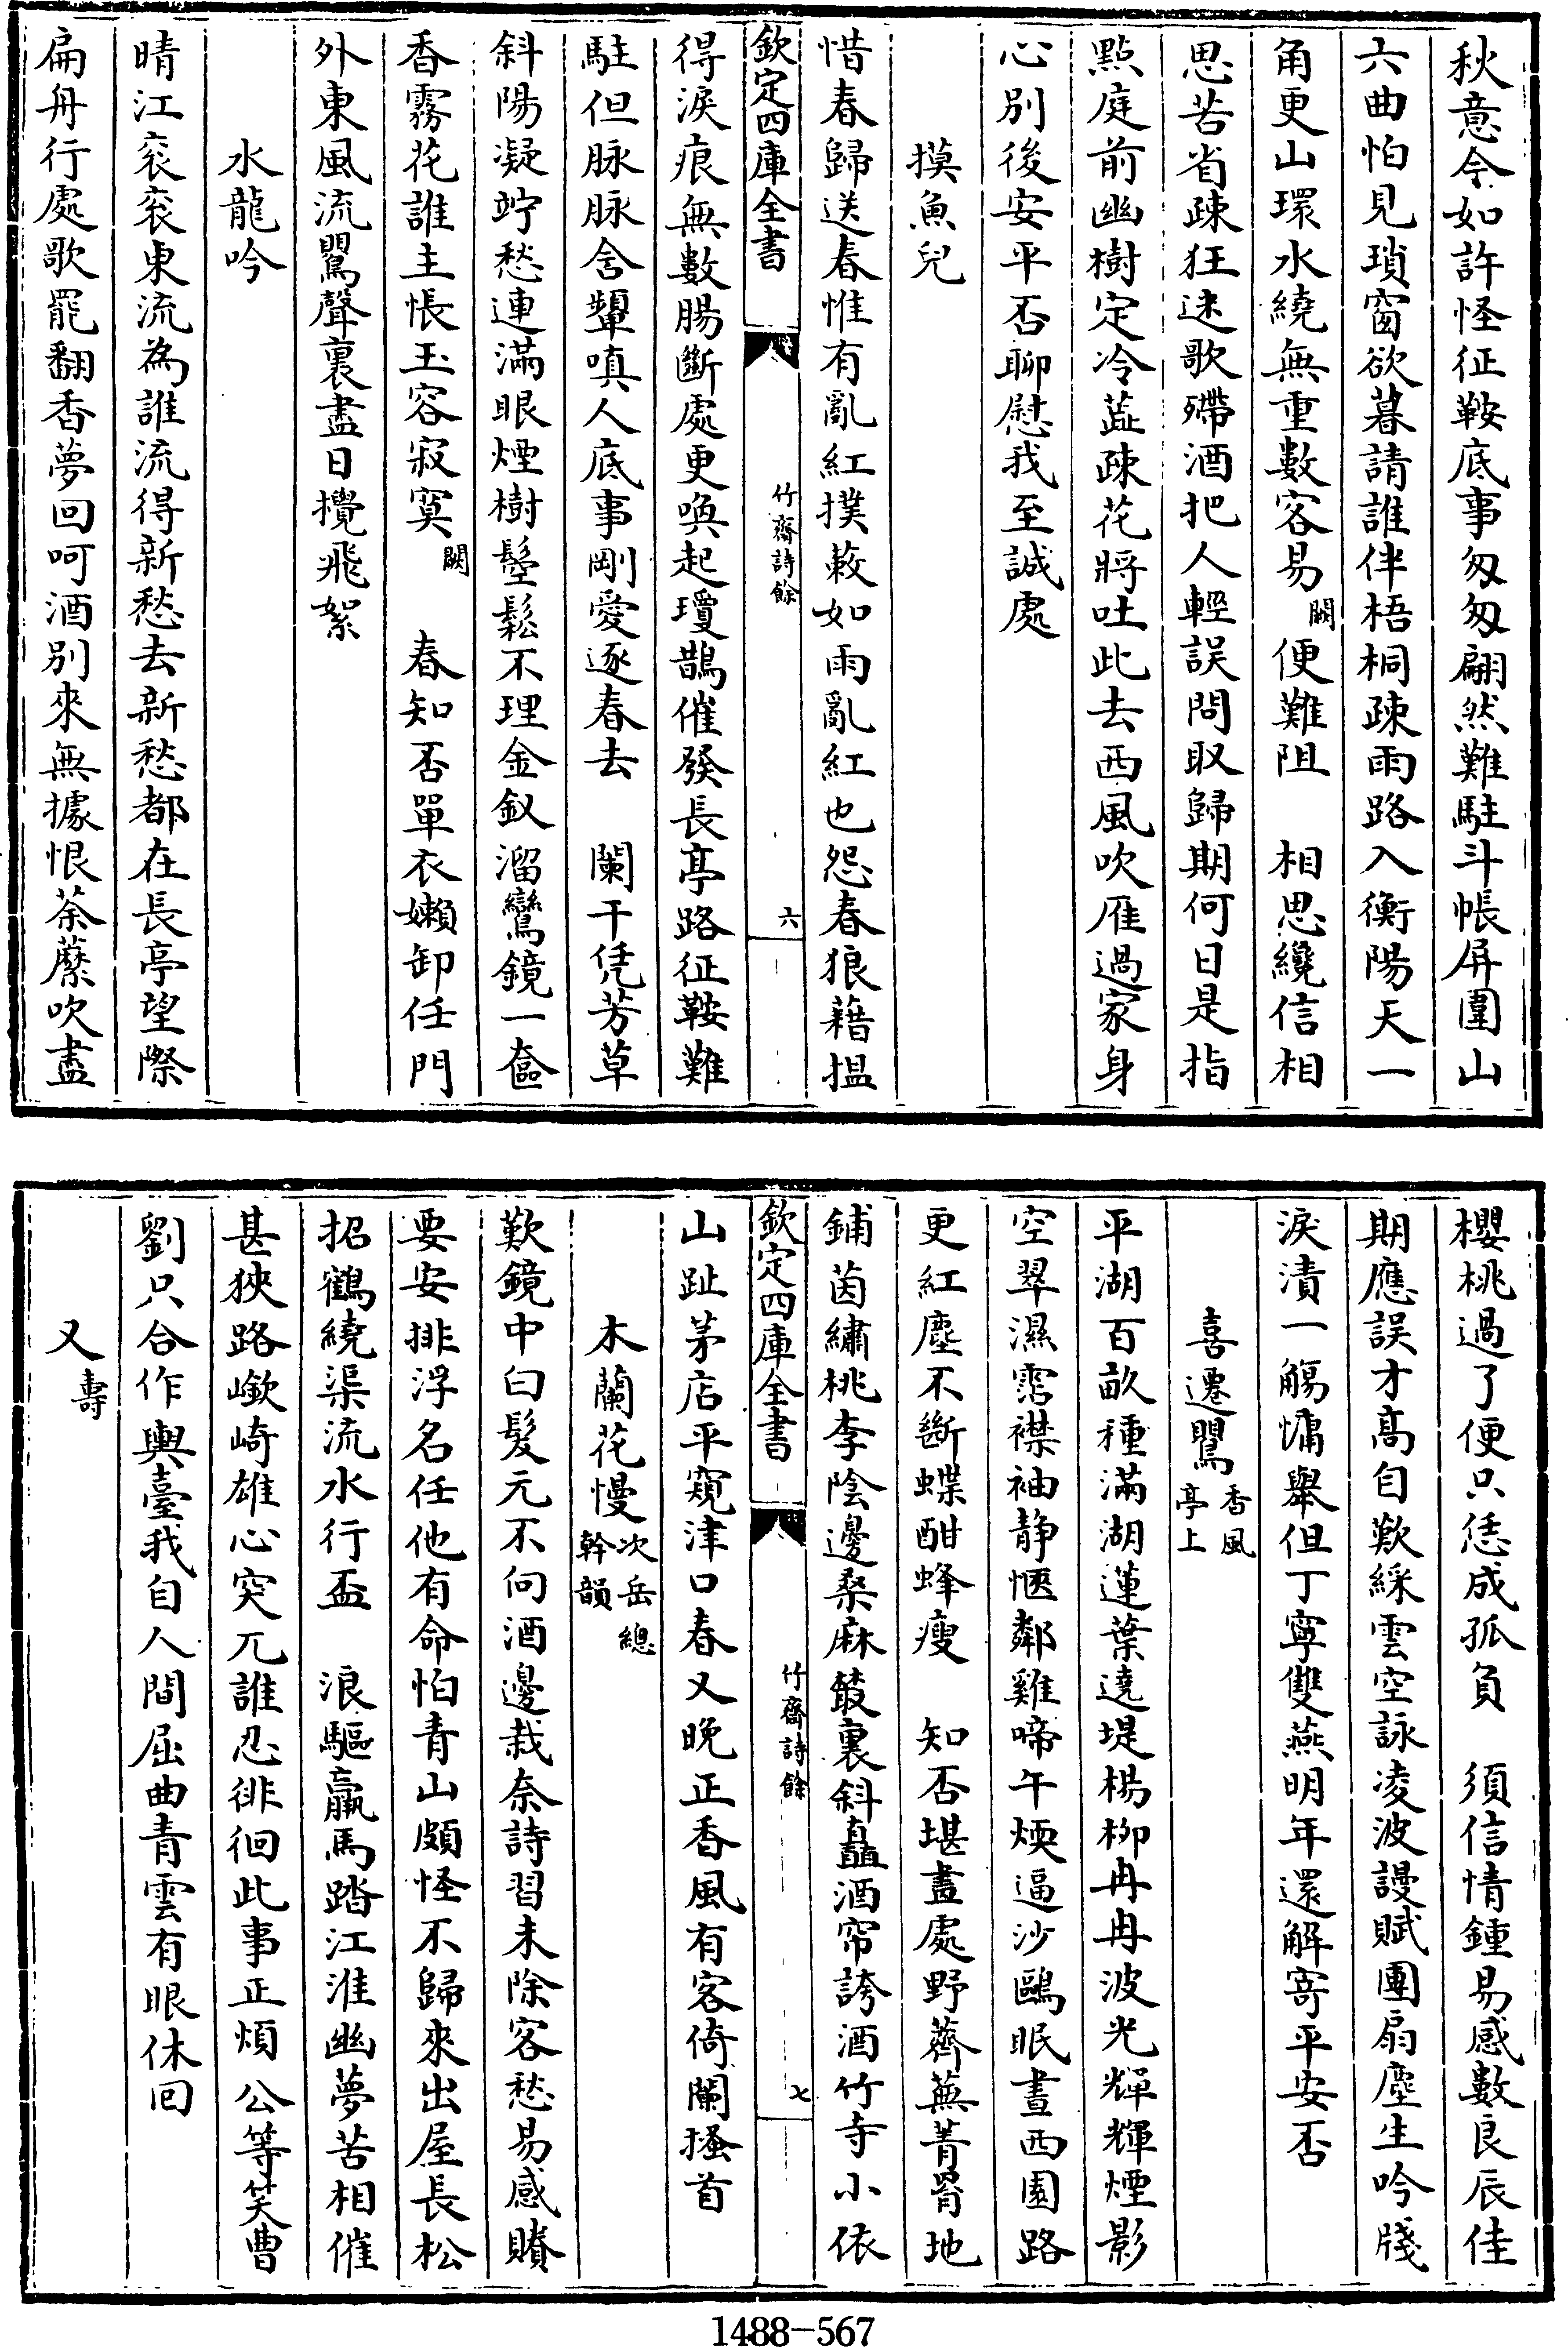 秋意今如許怪征鞍底事匆匆翩然難駐斗帳屏圍山
六曲怕見瑣窗欲暮請誰伴梧桐疎雨路入衡陽天一
角更山環水繞無重數客易闕便難阻　相思纔信相
思苦省疎狂迷歌殢酒把人輕誤問取歸期何日是指
點庭前幽樹定冷蘂疎花將吐此去西風吹雁過家身
心別後安平否聊慰我至誠處
摸魚兒
惜春歸送春惟有亂紅撲蔌如雨亂紅也怨春狼藉搵
欽定四庫全書　竹齋詩餘　六
得淚痕無數腸斷處更喚起瓊鵲催發長亭路征鞍難
駐但脉脉含顰嗔人底事剛愛逐春去　闌干凭芳草
斜陽凝竚愁連滿眼煙樹鬆鬆不理金釵溜鸞鏡一奩
香霧花誰主悵玉容寂寞闕　春知否單衣嬾卸任門
外東風流鸎聲裏盡日攪飛絮
水龍吟
晴江衮衮東流為誰流得新愁去新愁都在長亭望際
扁舟行處歌罷翻香夢回呵酒別來無據恨荼蘼吹盡
櫻桃過了便只恁成孤負　須信情鍾易感數良辰佳
期應誤才髙自歎綵雲空詠凌波謾賦團扇塵生吟牋
淚漬一觴慵舉但丁寧雙燕明年還解寄平安否
喜遷鸎香風亭上
平湖百畝種滿湖蓮葉遶堤楊栁冉冉波光輝輝煙影
空翠濕霑襟袖静愜鄰雞啼午煗逼沙鷗眠晝西園路
更紅塵不斷蝶酣蜂瘦　知否堪畫處野薺蕪菁胥地
鋪茵繡桃李陰邊桑麻叢裏斜矗酒帘誇酒竹寺小依
欽定四庫全書　竹齋詩餘　七
山趾茅店平窺津口春又晚正香風有客倚闌搔首
木蘭花慢次岳總幹韻
歎鏡中白髮元不向酒邊栽奈詩習未除客愁易感賸
要安排浮名任他有命怕青山頗怪不歸來出屋長松
招鶴繞渠流水行盃　浪驅羸馬踏江淮幽夢苦相催
甚狹路嶔崎雄心突兀誰忍徘徊此事正煩公等笑曹
劉只合作輿臺我自人間屈曲青雲有眼休回
又壽
1488-567